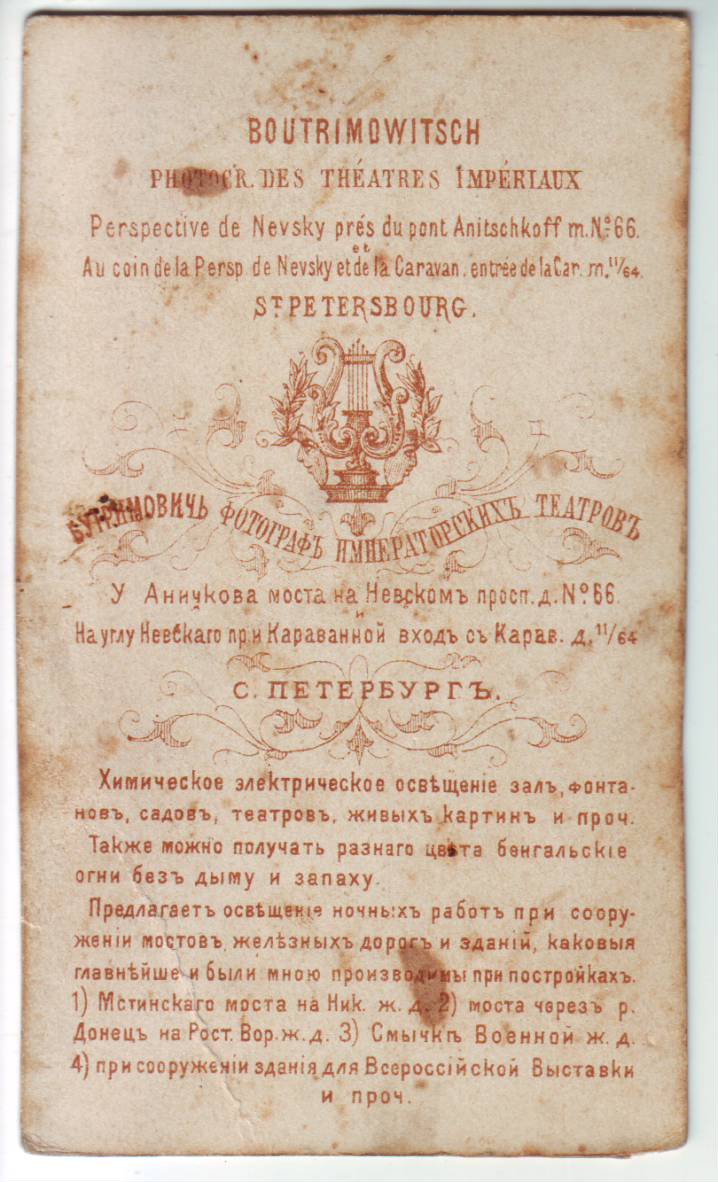 BOUTRIMOWITSCH
PHOTOGR. DES THÉATRES IMPÉRIAUX
Perspective de Nevsky prés du pont Anitschkoff m. № 66.
et
Au coin de la Persp de Nevsky et de la Caravan. entrée de la Car. m. 11/64.
ST PETERSBOURG.
БУТРИМОВИЧЬ ФОТОГРАФЪ ИМПЕРАТОРСКИХЪ ТЕАТРОВЪ
У Аничкова моста на Невскомъ просп. д. № 66
и
На углу Невскаго при Караванной входъ съ Карав. д. 11/64
С. ПЕТЕРБУРГЪ.
Химическое электрическое освѣщеніе залъ, фонта-
новъ, садовъ, театровъ, живыхъ картинъ и проч.
Также можно получать разнаго цвѣта бенгальскіе
огни безъ дыму и запаху.
Предлагаетъ освѣщеніе ночныхъ работъ при соору-
женіи мостовъ, желѣзныхъ дорогъ и зданій, каковыя
главнѣйше и были мною производимы при постройкахъ.
1) Мстинскаго моста на Ник. ж. д. 2) моста черезъ р.
Донецъ на Рост. Вор. ж. д. 3) Смычкѣ Военной ж. д.
4) при сооруженіи зданія для Всероссійской Выставки
и проч.